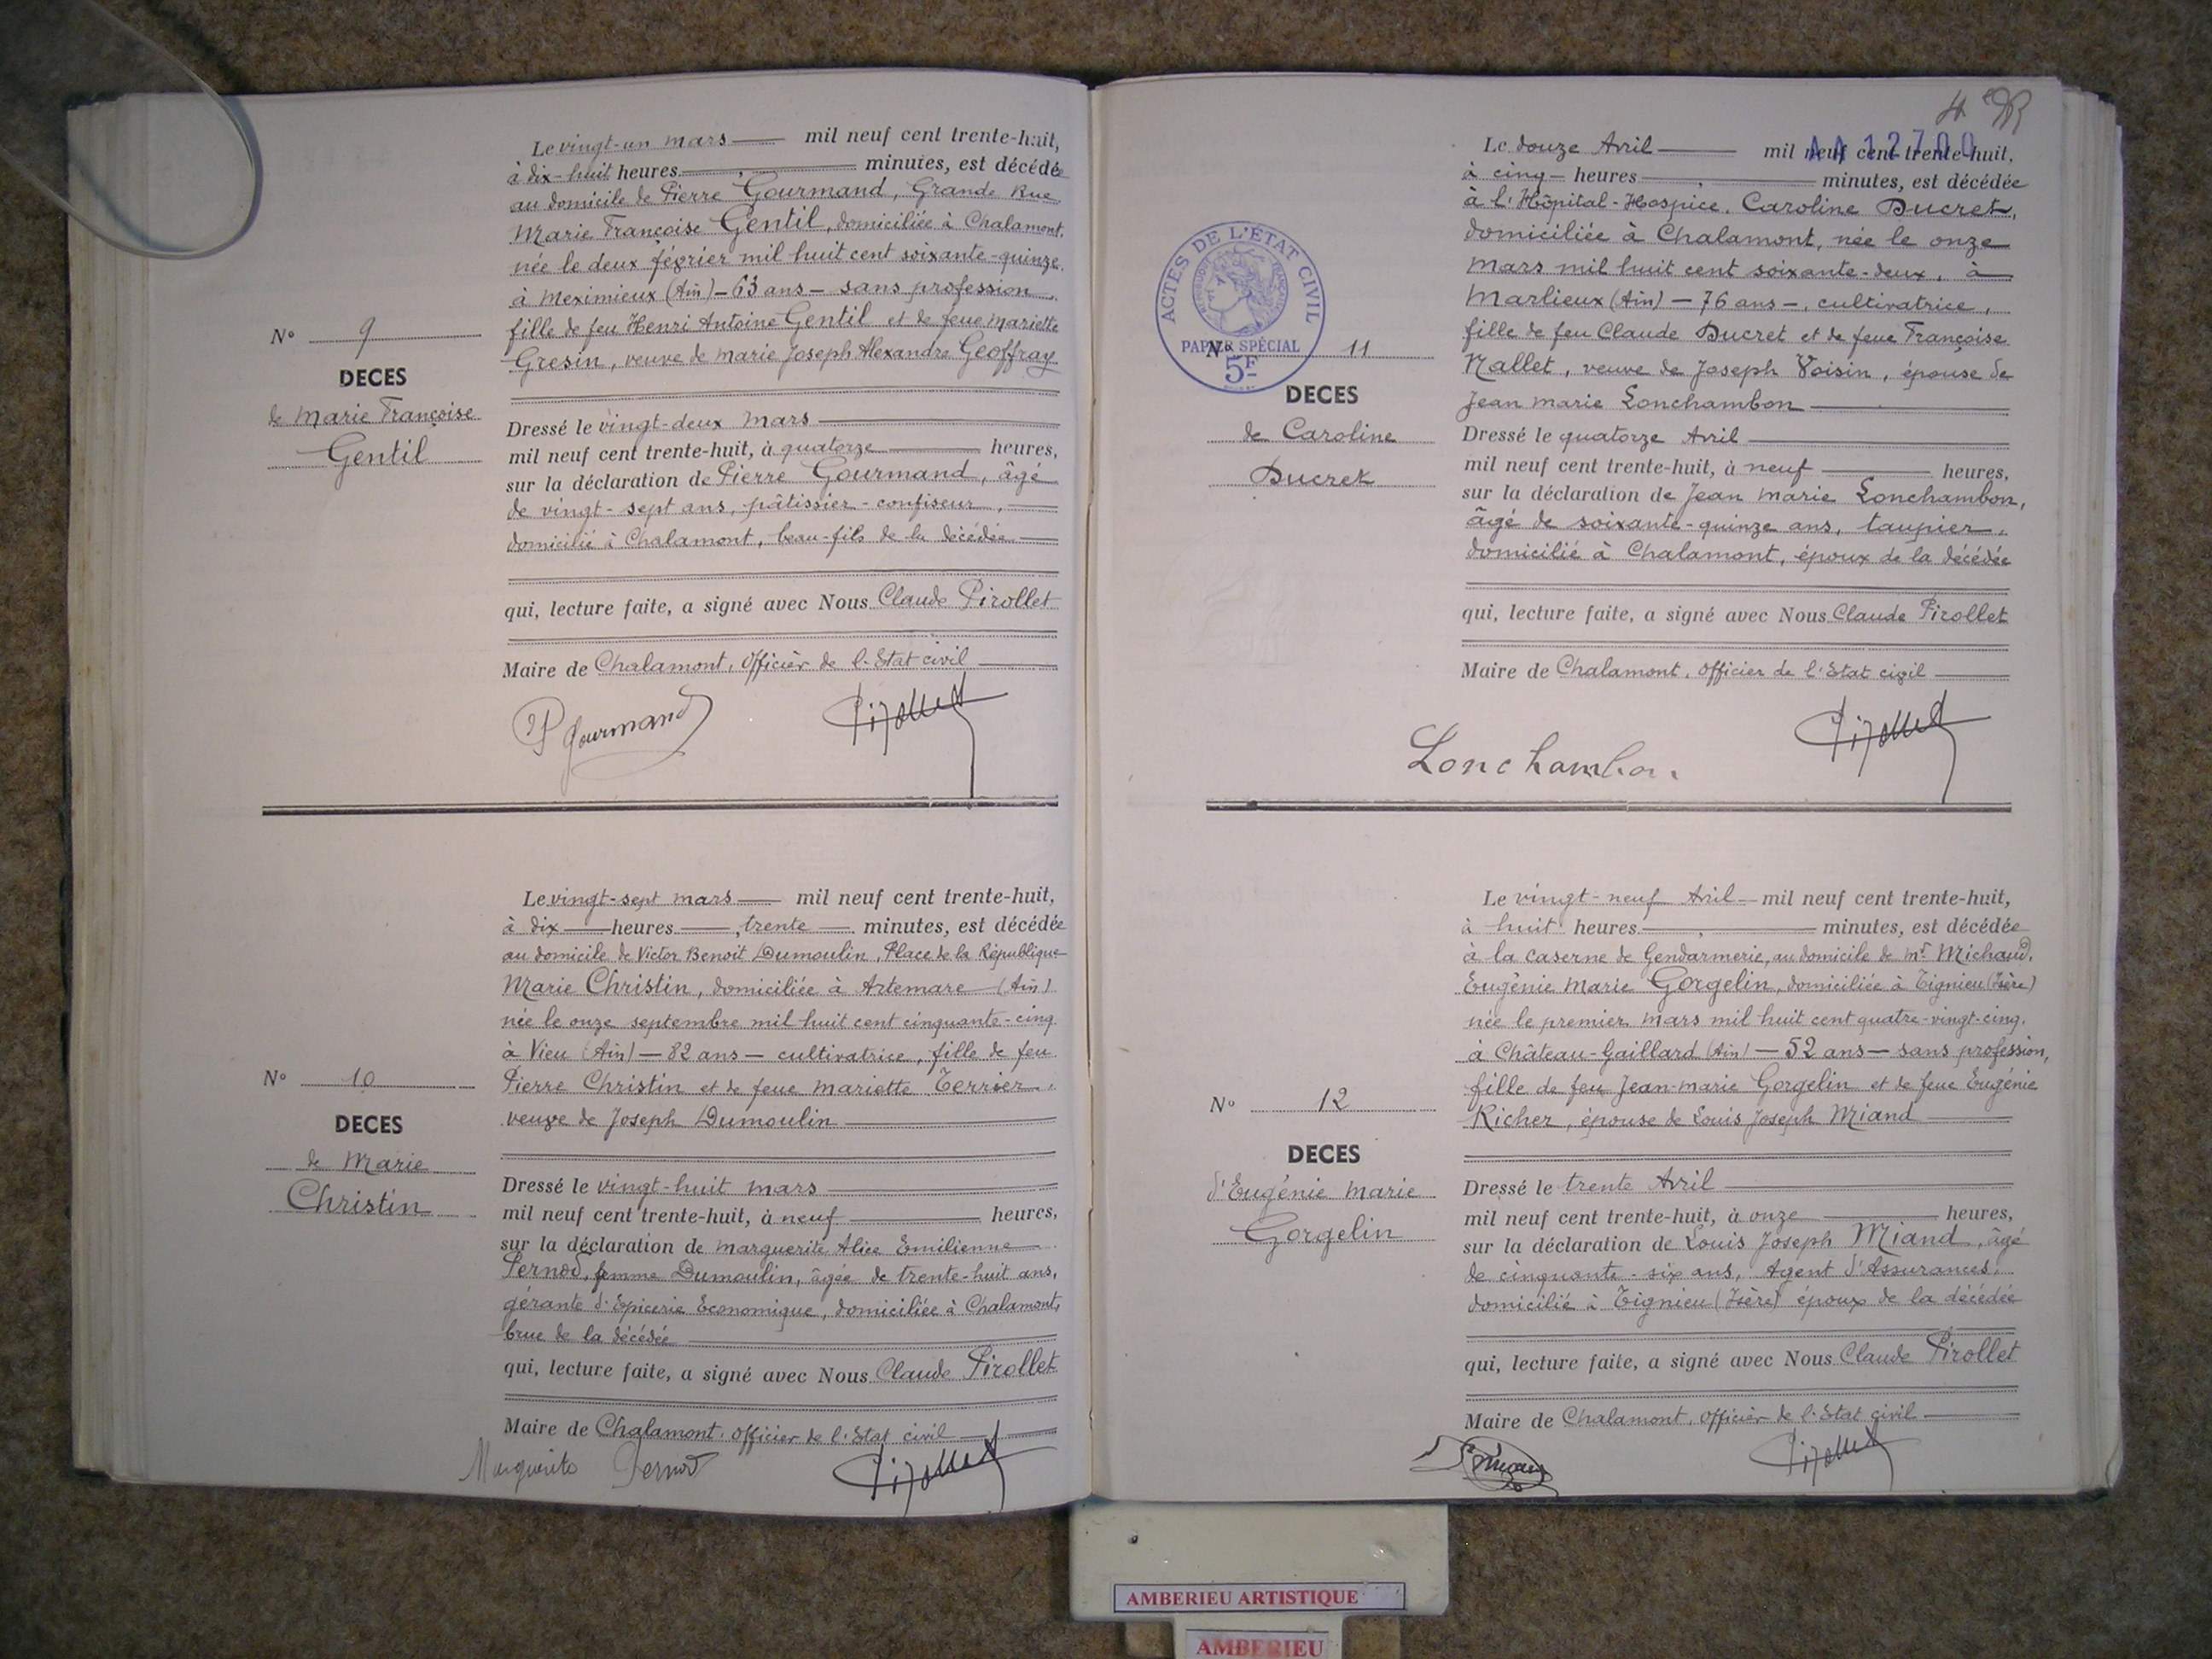 Le vingt-un mars mil neuf cent trente-huit,
à dix-huit heures , minutes, est décédée
au domicile de Pierre Gourmand, Grande Rue
Marie Françoise Gentil, domiciliée à Chalamont,
née le deux février mil huit cent soixante-quinze,
à Meximieux (Ain) – 63 ans – sans profession,
fille de feu Henri Antoine Gentil et de feue Mariette
Gresin, veuve de Marie Joseph Alexandre Geoffray
N° 9
DECES
de Marie Françoise
Gentil
Dressé le vingt-deux mars
mil neuf cent trente-huit, à quatorze heures,
sur la déclaration de Pierre Gourmand, âgé
de vingt-sept ans, pâtissier-confiseur,
domicilié à Chalamont, beau-fils de la décédée
qui, lecture faite, a signé avec Nous Claude Pirollet
Maire de Chalamont, Officier de l'Etat civil
P Gourmand Pirollet
Le vingt-sept mars mil neuf cent trente-huit,
à dix heures , trente minutes, est décédée
au domicile de Victor Benoit Dumoulin, Place de la République
Marie Christin, domiciliée à Artemare (Ain)
née le onze septembre mil huit cent cinquante-cinq
à Vieu (Ain) – 82 ans – cultivatrice, fille de feu
Pierre Christin et de feue Mariette Terrier,
veuve de Joseph Dumoulin
N° 10
DECES
de Marie
Christin
Dressé le vingt-huit mars
mil neuf cent trente-huit, à neuf heures,
sur la déclaration de Marguerite Alice Emilienne
Pernod, femme Dumoulin, âgée de trente-huit ans,
gérante d'Epicerie Economique, domiciliée à Chalamont,
brue de la décédée
qui, lecture faite, a signé avec Nous Claude Pirollet
Maire de Chalamont, Officier de l'Etat civil
Marguerite Pernod Pirollet
4
Le douze Avril mil neuf cent trente-huit,
à cinq heures , minutes, est décédée
à l'Hôpital-Hospice, Caroline Ducret,
domiciliée à Chalamont, née le onze
Mars mil huit cent soixante-deux, à
Marlieux (Ain) – 76 ans –, cultivatrice,
fille de feu Claude Ducret et de feue Françoise
Mallet, veuve de Joseph Voisin, épouse de
Jean Marie Lonchambon
ACTES DE L'ÉTAT CIVIL
PAPIER SPÉCIAL
5F
N° 11
DECES
de Caroline
Ducret
Dressé le quatorze Avril
mil neuf cent trente-huit, à neuf heures,
sur la déclaration de Jean Marie Lonchambon,
âgé de soixante-quinze ans, taupier,
domicilié à Chalamont, époux de la décédée
qui, lecture faite, a signé avec Nous Claude Pirollet
Maire de Chalamont, Officier de l'Etat civil
Lonchambon Pirollet
Le vingt-neuf Avril mil neuf cent trente-huit,
à huit heures , minutes, est décédée
à la Caserne de Gendarmerie, au domicile de Mr Michaud,
Eugénie Marie Gorgelin, domiciliée à Tignieu (Isère)
née le premier mars mil huit cent quatre-vingt-cinq,
à Château-Gaillard (Ain) – 52 ans – sans profession,
fille de feu Jean-Marie Gorgelin et de feue Eugénie
Richer, épouse de Louis Joseph Miand
N° 12
DECES
d'Eugénie Marie
Gorgelin
Dressé le trente Avril
mil neuf cent trente-huit, à onze heures,
sur la déclaration de Louis Joseph Miand, âgé
de cinquante-six ans, Agent d'Assurances,
domicilié à Tignieu (Isère) époux de la décédée
qui, lecture faite, a signé avec Nous Claude Pirollet
Maire de Chalamont, Officier de l'Etat civil
Pirollet
AMBERIEU ARTISTIQUE
AMBERIEU